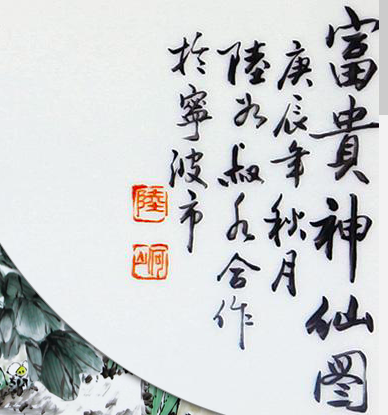 富貴神仙圖
庚辰年秋月
陸叔合作
於寧波市
陸